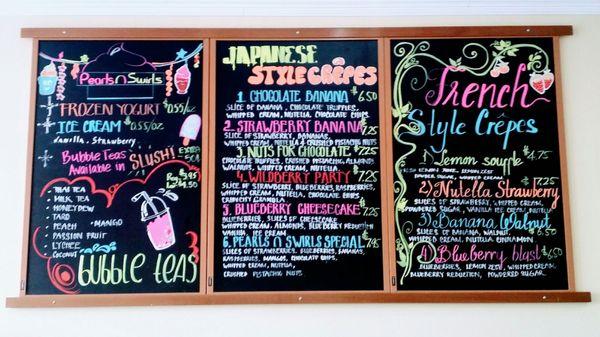 Pearls n Swirls
FROZEN YOGURT $0.55/oz
ICE CREAM $0.55/oz
Vanilla, Strawberry
Bubble Teas
Available in SLUSH!
EXTRA
50¢
THAI TEA
MILK TEA
HONEYDEW
TARO
PEACH
MANGO
PASSION FRUIT
LYCHEE
COCONUT
BUBBLE TEAS
JAPANESE
STYLE CRÊPES
1. CHOCOLATE BANANA $6.50
SLICE OF BANANA, CHOCOLATE TRUFFLES,
WHIPPED CREAM, NUTELLA, CHOCOLATE CHIPS
2. STRAWBERRY BANANA $7.25
SLICE OF STRAWBERRIES, BANANAS,
WHIPPED CREAM, NUTELLA & CRUSHED PISTACHIO NUTS
3. NUTS FOR CHOCOLATE $7.25
CHOCOLATE TRUFFLES, CRUSHED PISTACHIO, ALMONDS
WALNUTS, WHIPPED CREAM, NUTELLA
4. WILDBERRY PARTY $7.25
SLICE OF STRAWBERRY, BLUEBERRIES, RASPBERRIES,
WHIPPED CREAM, NUTELLA, CHOCOLATE CHIPS,
CRUNCHY GRANOLA
5. BLUEBERRY CHEESECAKE $7.25
BLUEBERRIES, SLICES OF CHEESECAKE,
WHIPPED CREAM, ALMONDS, BLUEBERRY REDUCTION
VANILLA ICE CREAM
6. PEARLS N SWIRLS SPECIAL $7.95
SLICES OF STRAWBERRIES, BLUEBERRIES, BANANAS,
RASPBERRIES, MANGOS, CHOCOLATE CHIPS,
WHIPPED CREAM, NUTELLA,
CRUSHED PISTACHIO NUTS
French
Style Crepes
1) Lemon souple $4.75
LEMON ZEST
POWDER SUGAR, WHIPPED CREAM
2) Nutella Strawberry $7.25
SLICES OF STRAWBERRY, WHIPPED CREAM,
POWDERED SUGAR, VANILLA ICE CREAM, NUTELLA
3) Banana Walnut
SLICES OF BANANA, WALNUT $6.50
WHIPPED CREAM, NUTELLA CINNAMON
4) Blueberry blast $6.50
BLUEBERRIES, LEMON ZEST, WHIPPED CREAM,
BLUEBERRY REDUCTION, POWDERED SUGAR